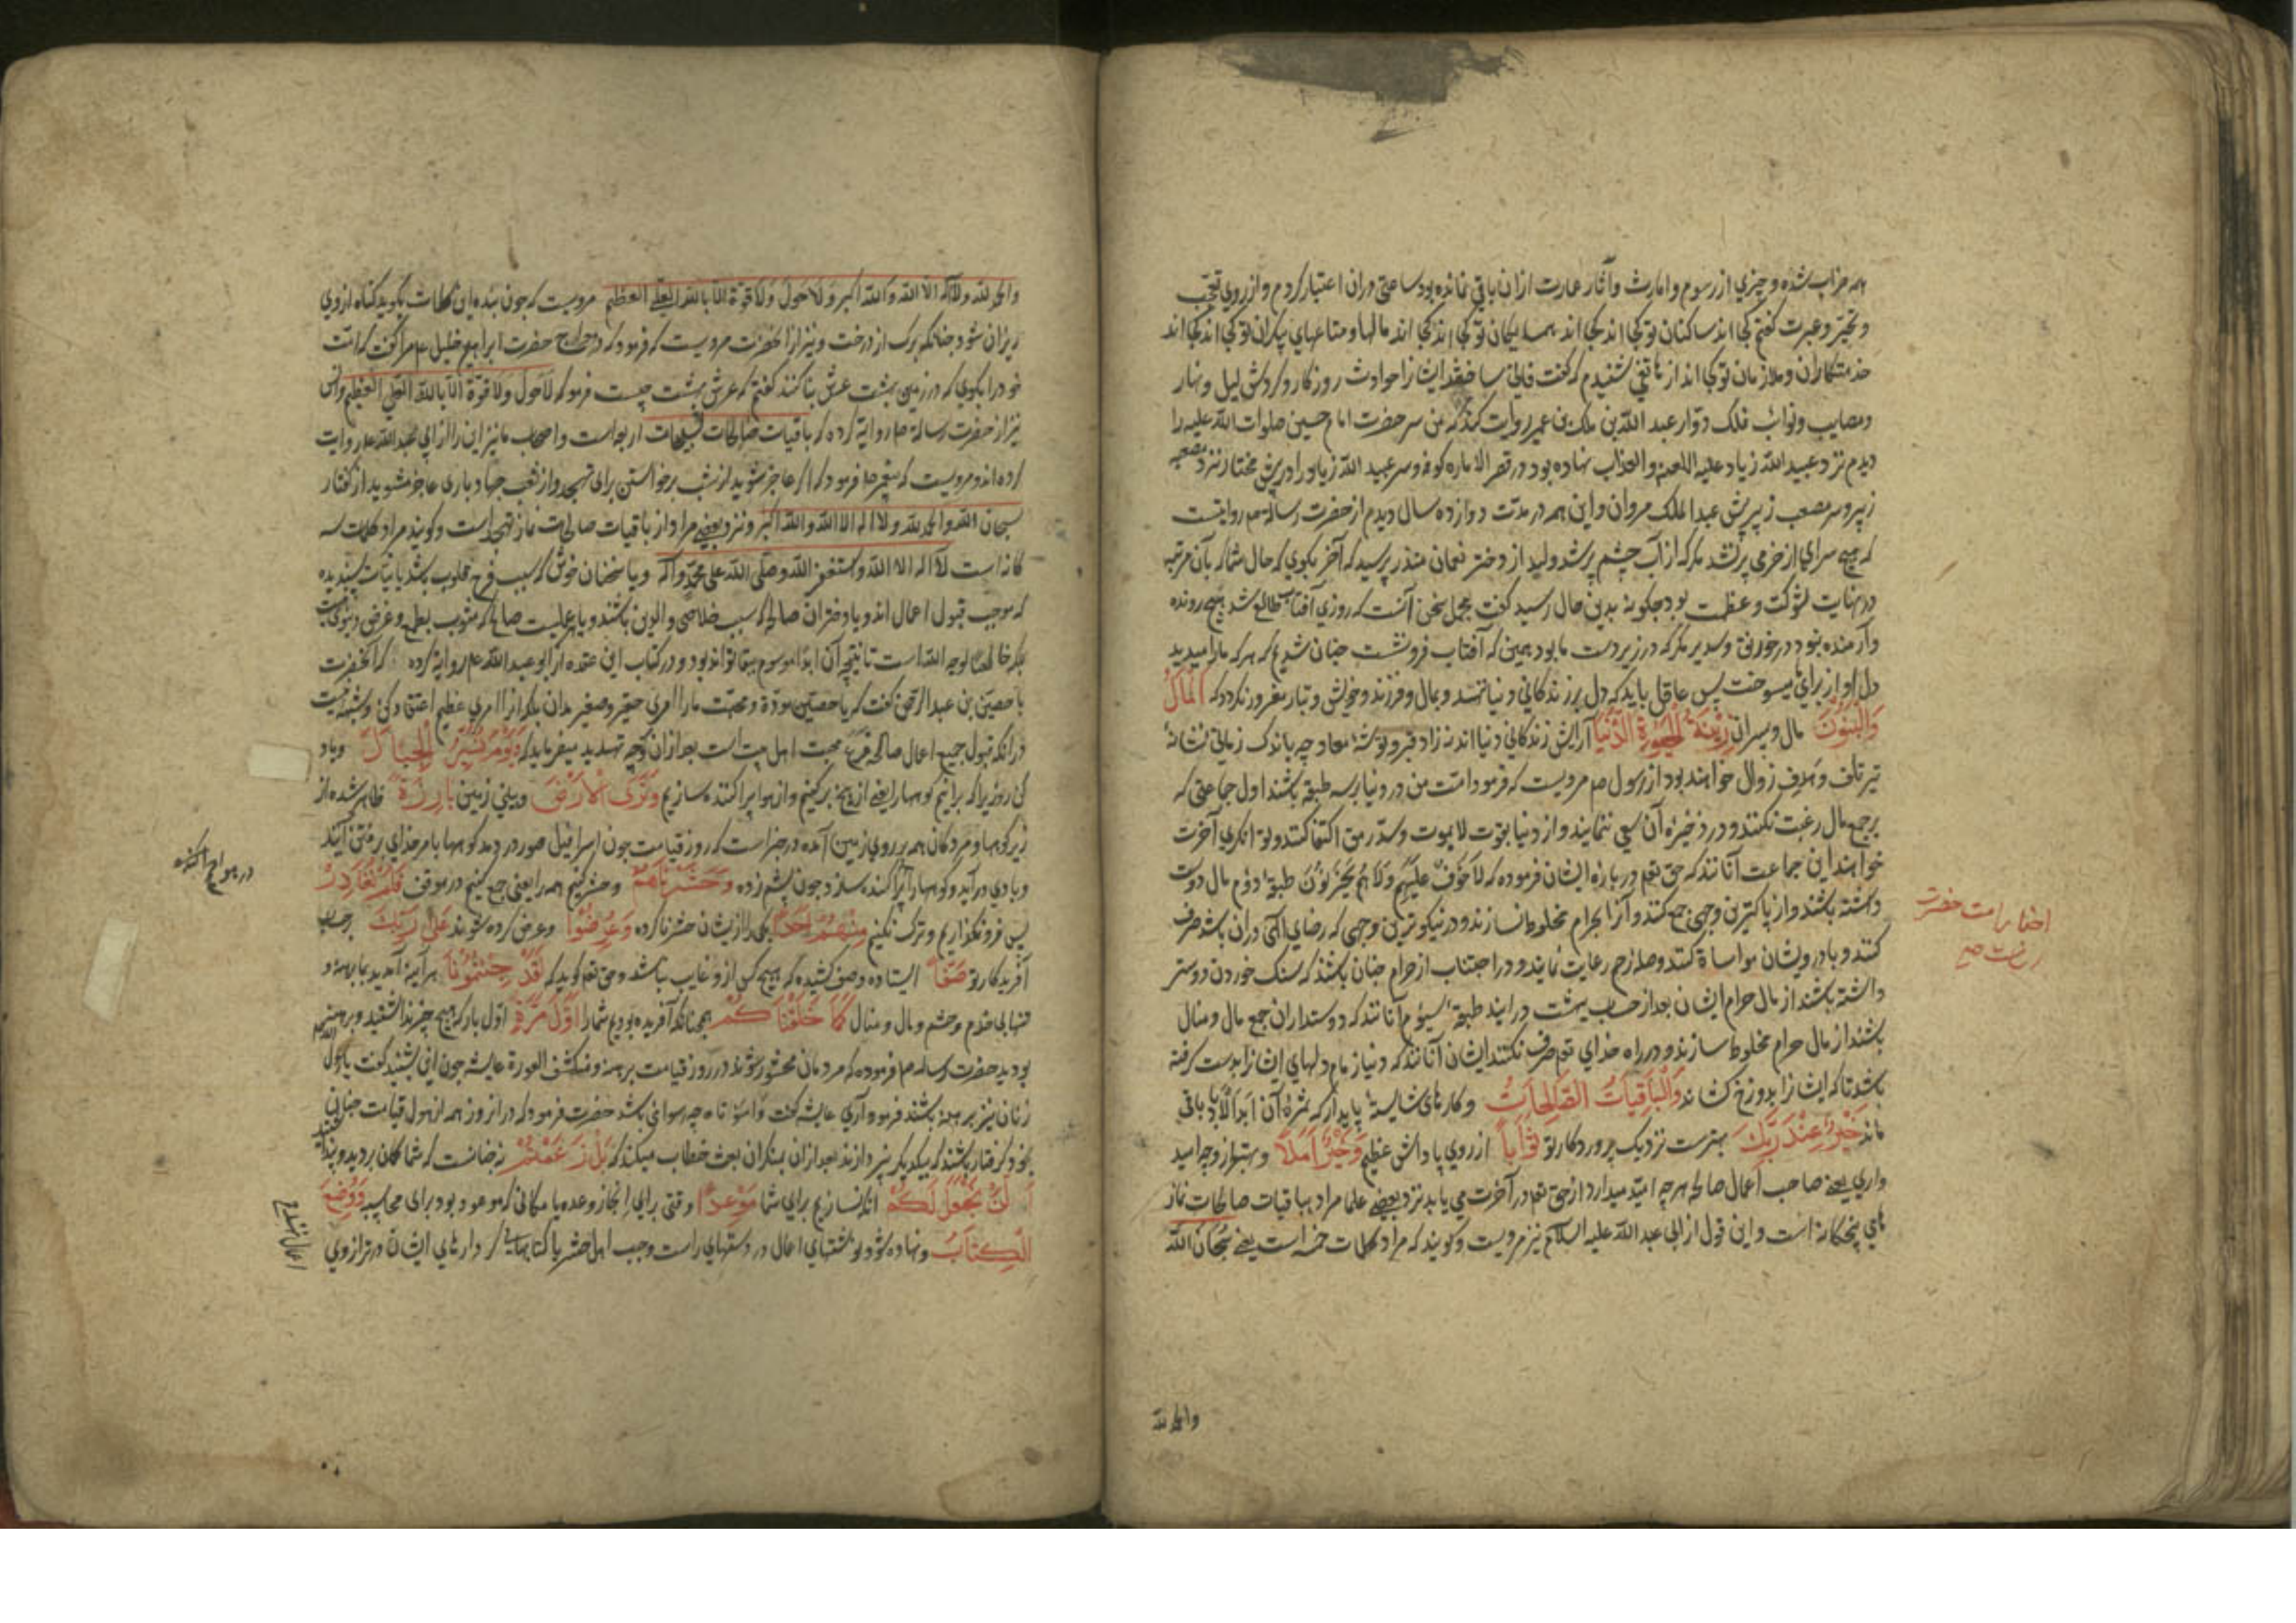 همه خراب شده و چیزی از رسوم و امارت و آثار عمارت ازان باقی نمانده بود ساعتی دران اعتبار کردم و از روی تعجّب
و تحیّر و عبرت گفتم کجا اند ساکنان تو کجا اند کجا اند همسایگان تو کجا اند کجا اند مالها و متاعهای بیکران تو کجا اند کجا اند
خدمتکاران و ملازمان تو کجا اند از هاتفی شنیدم که گفت روزکار و کردش لیل و نهار
ومصایب و نوائب فلک دوّار عبد الله بن ملک بن عمیر روایت کند که من سر حضرت امام حسین صلوات الله علیه را
دیدم نزد عبید الله زیاد علیه اللعنه والعذاب نهاده بود در قصر الاماره کوفه و سر عبید الله زیاد را در پیش مختار نزد مصعب
زبیر و سر مصعب زبیر پیش عبد الملک مروان و این همه در مدّت دوازده سال دیدم از حضرت رساله صم روایتست
که هیچ سرای از خرمی پر نشد مکر که از آب چشم پر شد ولید از دختر نعمان منذر پرسید که آخر بکوی که حال شما که بآن مرتبه
در نهایت شوکت و عظمت بود چکونه بدین حال رسید کفت مجمل سخن آنست که روزی آفتاب طالع شد هیچ رونده
و آرمنده نبود در خورنق و سدیر مکر که در زیر دست ما بود همین که آفتاب فرو نشست چنان شدیم که هر که ما را میدید
دل او از برای ما میسوخت پس عاقل باید که دل بر زندکانی دنیا ننهد و بمال و فرزند و خویش و تبار مغرور نکردد که اَلْمَالُ
وَالْبَنُونَ مال و پسران زِینَةُ الْحَیٰوةِ الدُّنْیَا آرایش زندکانی دنیا اند نه زاد قبر و توشهٔ معاد و چه باندک زمانی نشانهٔ
تیر تلف و هدف زوال خواهند بود از رسول صم مرویست که فرمود امّت من در دنیا بر سه طبقه باشند اول جماعتی که
بر جمع مال رغبت نکنند و در ذخیرهٔ آن سعی ننمایند و از دنیا بقوت لا یموت و سدّ رمق اکتفا کنند و توانکری آخرت
خواهند این جماعت آنانند که حق تعم در باره ایشان فرموده که لَاخَوْفٌ عَلَیْهِمْ وَلَاهُمْ یَحْزَنُونَ طبقهٔ دوّم مال دوست
داشته باشند و از پاکترین وجهی جمع کنند و آنرا بحرام مخلوط نسازند و در نیکوترین وجهی که رضای الهی دران باشد صرف
کنند و با درویشان مواساة کنند و صله ارحم رعایت نمایند و در اجتناب از حرام چنان باشند که سنک خوردن دوستر
داشته باشند از مال حرام ایشان بعد از حساب ببهشت درایند طبقهٔ سیوّم آنانند که دوستداران جمع مال و منال
باشند از مال حرام مخلوط سازند و در راه خدای تعم صرف نکنند ایشان آنانند که دنیا زمام دلهای ایشانرا بدست کرفته
باشد تا که ایشانرا بدوزخ کشاند وَالْبَاقِیَاتُ الصَّالِحَاتُ وکارهای شایستهٔ پایدار که ثمرهٔ آن ابد الآباد باقی
ماند خَیْرٌ عِنْدَ رَبِّکَ بهترست نزدیک پروردکار تو ثَوَاباً از روی پاداش عظیم وَخَیْرٌ اَمَلًا و بهتر از وجه امید
واری یعنی صاحب اعمال صالحه هرچه امید میدارد از حق تعم در آخرت می یابد نزد بعضی علما مراد بباقیات صالحات نماز
های پنجکانه است و این قول از ابی عبد الله علیه السلام نیز مرویست وکویند که مراد کلمات خمسه است یعنی سُبْحَانَ الله
والحمد لله
احضرت
والحمد لله ولا اله الا الله والله اکبر ولا حول ولا قوّة الا بالله العلی العظیم مرویست که چون بنده این کلمات بکوید کناه از وی
ریزان شود چنانکه برک از درخت و نیز از آنحضرت مرویست که فرمود که در معراج حضرت ابراهیم خلیل عم مرا کفت که امّت
خود را بکوی که در زمین بهشت عرش بنا کنند کفتم که عرش بهشت چیست فرمود که لَاحول ولا قوّة الّا بالله العلی العظیم و انس
نیز از حضرت رسالة صم روایة کرده که باقیات صالحات تسبیحات اربعه است و اصحاب ما نیز این را از ابی عبد الله عم روایت
کرده اند و مرویست که پیغمبر صم فرمود که اکر عاجز شوید از شب برخواستن برای تهجّد و از تعب جهاد باری عاجز مشوید از کفتار
سبحان الله والحمد لله ولا اله الا الله والله اکبر و نزد بعضی مراد از باقیات صالحات نماز تهجد است وکویند مراد کلمات سه
کانه است لا اله الا الله و استغفر الله و صلّی الله علی محمّد وآله و یا سخنان خوش که سبب فرح قلوب باشد یا نیّات پسندیده
که موجب قبول اعمال اند و یا دختران صالحه که سبب خلاصی والدین باشند و یا عملیست صالح که مشوب بعلّه و غرض دنیوی نباشد
بلکه خالصًا لوجه الله است تا نتیجهٔ آن ابدا موسوم ببقا تواند بود و در کتاب ابن عقده از ابو عبد الله عم روایة کرده که آنحضرت
با حصین بن عبد الرحمن کفت که یا حصین مودّة و محبّت ما را امری حقیر و صغیر مدان بلکه از امری عظیم اعتقاد کن و شبهه نیست
در انکه قبول جمیع اعمال صالحه فرع محبت اهل بیت است بعد ازان بوجه تهدید میفرماید که وَیَوْمَ نُسَیِّرُ الْجِبَالَ و یاد
کن روزی را که برانیم کوهها را یعنی از بیخ برکنیم و از هوا پراکنده سازیم وَتَرَی الْاَرْضَ و بینی زمین بَارِزَةً ظاهر شده از
زیر کوهها و مردکان همه بر روی زمین آمده در خبر است که روز قیامت چون اسرافیل صور در دمد کوهها بامر خدای برفتن آیند
و بادی درآید و کوهها را پراکنده سازد چون پشم زده وَحَشَرْنَاهُمْ و حشر کنیم همه را یعنی جمع کنیم در موقف فَلَمْ نُغَادِرْ
پس فرو نکذاریم و ترک نکنیم مِنْهُمْ اَحَدًا یکی را از ایشان حشر ناکرده وَعُرِضُوا و عرض کرده شوند عَلٰی رَبِّکَ بر حساب
آفریدکار تو صَفًّا ایستاده و صف کشیده که هیچ کس از او غایب نباشد و حق تعم کوید که لَقَدْ جِئْتُمُونَا هر آینه آمدید بما برهنه و
تنها بی خدم و حشم و مال و منال کَمَا خَلَقْنَاکُمْ همچنانکه آفریده بودیم شما را اَوَّلَ مَرَّةٍ اوّل بار که هیچ چیز نداشتید و برهنه
بودید حضرت رساله صم فرموده که مردمان محشور شوند در روز قیامت برهنه و منکشف العورة عایشه چون این بشنید کفت یا رسول الله
زنان نیز برهنه باشند فرمود آری عایشه کفت وا سواتاه چه رسوائی باشد حضرت فرمود که در ان روز همه از هول قیامت چنان
بخود کرفتار باشند که بیکدیکر نپردازند بعد ازان بمنکران بعث خطاب میکند که بَلْ زَعَمْتُمْ نه چنانست که شما کمان بردید
اَلَّنْ نَجْعَلَ لَکُمْ انکه نسازیم برای شما مَوْعِدًا وقتی برای انجاز وعده یا مکانی که موعود بود برای محاسبه وَوُضِعَ
الْکِتَابُ و نهاده شود نوشتهای اعمال در دستهای راست و چپ اهل حشر یا کتابهای کردارهای ایشان در ترازوی
اعمال